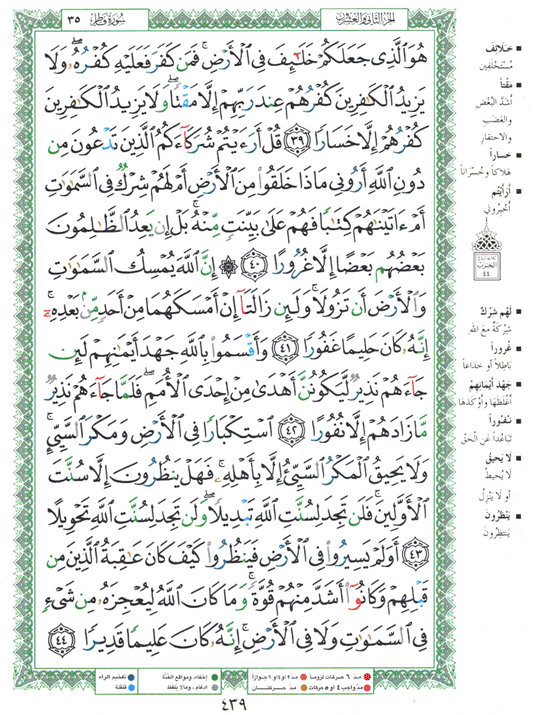 سُورَةُ فَاطِر
الجُزءُ الثَّانِي وَالعِشْرُون
٣٥
هُوَ ٱلَّذِى جَعَلَكُمْ خَلَـٰٓئِفَ فِى ٱلْأَرْضِ ۚ فَمَن كَفَرَ فَعَلَيْهِ كُفْرُهُۥ ۖ وَلَا
يَزِيدُ ٱلْكَـٰفِرِينَ كُفْرُهُمْ عِندَ رَبِّهِمْ إِلَّا مَقْتًا ۖ وَلَا يَزِيدُ ٱلْكَـٰفِرِينَ
كُفْرُهُمْ إِلَّا خَسَارًا ٣٩ قُلْ أَرَءَيْتُمْ شُرَكَآءَكُمُ ٱلَّذِينَ تَدْعُونَ مِن
دُونِ ٱللَّهِ أَرُونِى مَاذَا خَلَقُوا۟ مِنَ ٱلْأَرْضِ أَمْ لَهُمْ شِرْكٌ فِى ٱلسَّمَـٰوَٰتِ
أَمْ ءَاتَيْنَـٰهُمْ كِتَـٰبًا فَهُمْ عَلَىٰ بَيِّنَتٍ مِّنْهُ ۚ بَلْ إِن يَعِدُ ٱلظَّـٰلِمُونَ
بَعْضُهُم بَعْضًا إِلَّا غُرُورًا ٤٠ ۞ إِنَّ ٱللَّهَ يُمْسِكُ ٱلسَّمَـٰوَٰتِ
وَٱلْأَرْضَ أَن تَزُولَا ۚ وَلَئِن زَالَتَآ إِنْ أَمْسَكَهُمَا مِنْ أَحَدٍ مِّنۢ بَعْدِهِۦٓ ۚ
إِنَّهُۥ كَانَ حَلِيمًا غَفُورًا ٤١ وَأَقْسَمُوا۟ بِٱللَّهِ جَهْدَ أَيْمَـٰنِهِمْ لَئِن
جَآءَهُمْ نَذِيرٌ لَّيَكُونُنَّ أَهْدَىٰ مِنْ إِحْدَى ٱلْأُمَمِ ۖ فَلَمَّا جَآءَهُمْ نَذِيرٌ
مَّا زَادَهُمْ إِلَّا نُفُورًا ٤٢ ٱسْتِكْبَارًا فِى ٱلْأَرْضِ وَمَكْرَ ٱلسَّيِّئِ ۚ
وَلَا يَحِيقُ ٱلْمَكْرُ ٱلسَّيِّئُ إِلَّا بِأَهْلِهِۦ ۚ فَهَلْ يَنظُرُونَ إِلَّا سُنَّتَ
ٱلْأَوَّلِينَ ۚ فَلَن تَجِدَ لِسُنَّتِ ٱللَّهِ تَبْدِيلًا ۖ وَلَن تَجِدَ لِسُنَّتِ ٱللَّهِ تَحْوِيلًا
٤٣ أَوَلَمْ يَسِيرُوا۟ فِى ٱلْأَرْضِ فَيَنظُرُوا۟ كَيْفَ كَانَ عَـٰقِبَةُ ٱلَّذِينَ مِن
قَبْلِهِمْ وَكَانُوٓا۟ أَشَدَّ مِنْهُمْ قُوَّةً ۚ وَمَا كَانَ ٱللَّهُ لِيُعْجِزَهُۥ مِن شَىْءٍ
فِى ٱلسَّمَـٰوَٰتِ وَلَا فِى ٱلْأَرْضِ ۚ إِنَّهُۥ كَانَ عَلِيمًا قَدِيرًا ٤٤
خَلَائِفَ
مُسْتَخْلَفِين
مَقْتًا
أَشَدَّ البُغْضِ
والغَضَبِ
والاحتقارِ
خَسَارًا
هَلاكًا وخُسْرانًا
أَرَأَيْتُم
أَخْبِرُونِي
الحِزْب
٤٤
لَهُمْ شِرْكٌ
شِرْكَةٌ مَعَ اللهِ
غُرُورًا
بَاطِلًا أو خِدَاعًا
جَهْدَ أَيْمَانِهِمْ
أَغْلَظَهَا وأَوْكَدَهَا
نُفُورًا
تَبَاعُدًا عَنِ الحَقِّ
لَا يَحِيقُ
لَا يُحِيطُ
أو لَا يَنْزِلُ
يَنْظُرُونَ
يَنْتَظِرُونَ
مدّ ٦ حركات لزوماً
مدّ ٢ أو ٤ أو ٦ جوازاً
إخفاء، ومواقع الغُنَّة
تفخيم الراء
مدّ واجب ٤ أو ٥ حركات
مدّ حركتان
ادغام، وما لا يلفظ
قلقلة
٤٣٩